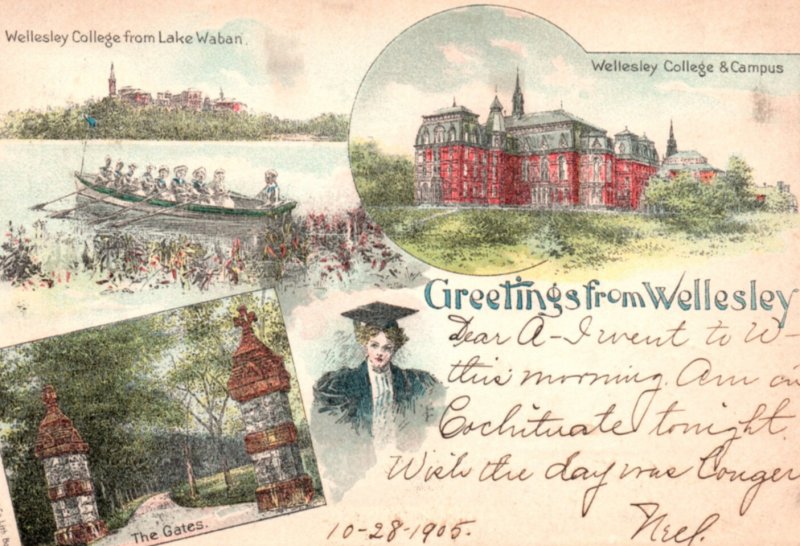 Wellesley College from Lake Waban.
Wellesley College & Campus
Greetings from Wellesley
Dear A- I went to W-
this morning. Am in
Cochituate tonight.
Wish the day was longer
Nell.
10-28-1905.
The Gates.